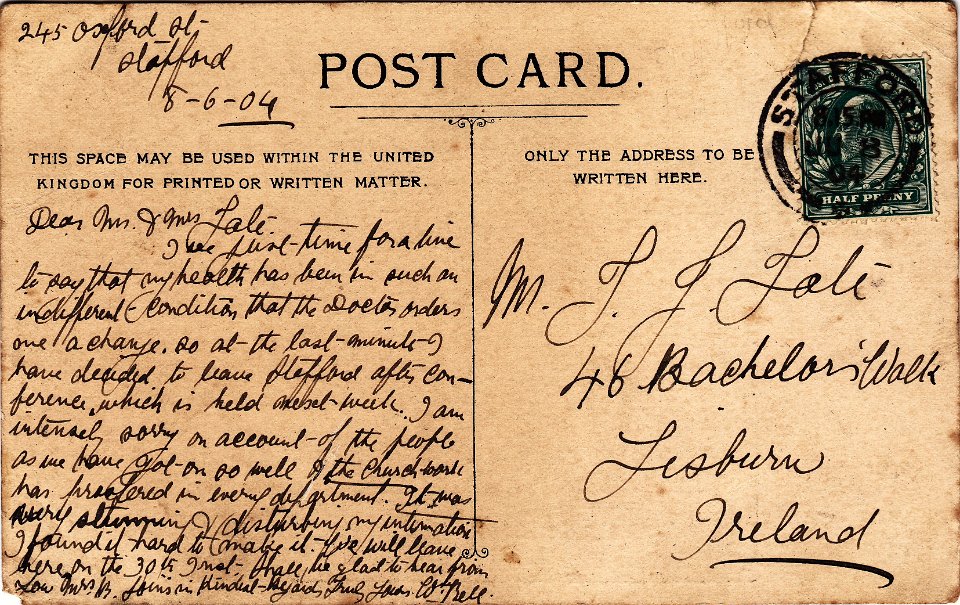 245 Oxford St
Stafford
8-6-04
POST CARD.
THIS SPACE MAY BE USED WITHIN THE UNITED
KINGDOM FOR PRINTED OR WRITTEN MATTER.
ONLY THE ADDRESS TO BE
WRITTEN HERE.
STAFFORD
8 15 PM
JU 8
04
HALF PENNY
Dear Mr. & Mrs Tate.
I have just time for a line
to say that my health has been in such an
indifferent condition that the Doctor orders
me a change. so at the last minute I
have decided to leave Stafford after con-
ference which is held next week. I am
intensely sorry on account of the people
as we have got on so well & the Church work
has prospered in every department. It was
very stunning & disturbing my
I found it hard to make it. We will leave
here on the 30th Inst. Shall be glad to hear from
you Mrs B. joins in kindest regards Truly Yours Wm Bell.
M. T. J. Tate
46 Bachelors' Walk
Lisburn
Ireland